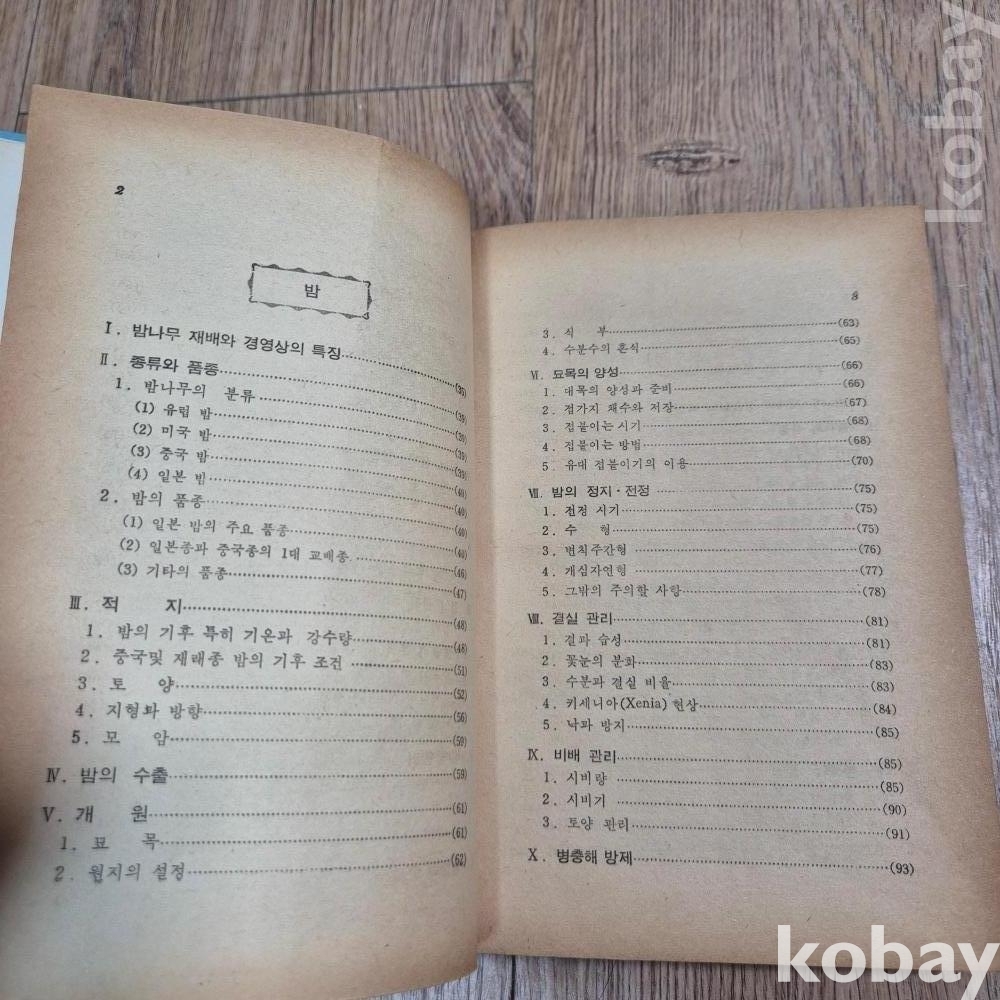 2
밤
Ⅰ. 밤나무 재배와 경영상의 특징 (35)
Ⅱ. 종류와 품종 (39)
1. 밤나무의 분류 (39)
(1) 유럽 밤 (39)
(2) 미국 밤 (39)
(3) 중국 밤 (39)
(4) 일본 밤 (40)
2. 밤의 품종 (40)
(1) 일본 밤의 주요 품종 (40)
(2) 일본종과 중국종의 1대 교배종 (46)
(3) 기타의 품종 (47)
Ⅲ. 적 지 (48)
1. 밤의 기후 특히 기온과 강수량 (48)
2. 중국및 재래종 밤의 기후 조건 (51)
3. 토 양 (52)
4. 지형과 방향 (56)
5. 모 암 (59)
Ⅳ. 밤의 수출 (59)
Ⅴ. 개 원 (61)
1. 묘 목 (61)
2. 원지의 설정 (62)
3
3. 식 부 (63)
4. 수분수의 혼식 (65)
Ⅵ. 묘목의 양성 (66)
1. 대목의 양성과 준비 (66)
2. 접가지 채수와 저장 (67)
3. 접붙이는 시기 (68)
4. 접붙이는 방법 (68)
5. 유대 접붙이기의 이용 (70)
Ⅶ. 밤의 정지·전정 (75)
1. 전정 시기 (75)
2. 수 형 (75)
3. 변칙주간형 (76)
4. 개심자연형 (77)
5. 그밖의 주의할 사항 (78)
Ⅷ. 결실 관리 (81)
1. 결과 습성 (81)
2. 꽃눈의 분화 (83)
3. 수분과 결실 비율 (83)
4. 키세니아(Xenia) 현상 (84)
5. 낙과 방지 (85)
Ⅸ. 비배 관리 (85)
1. 시비량 (85)
2. 시비기 (90)
3. 토양 관리 (91)
Ⅹ. 병충해 방제 (93)
kobay
kobay